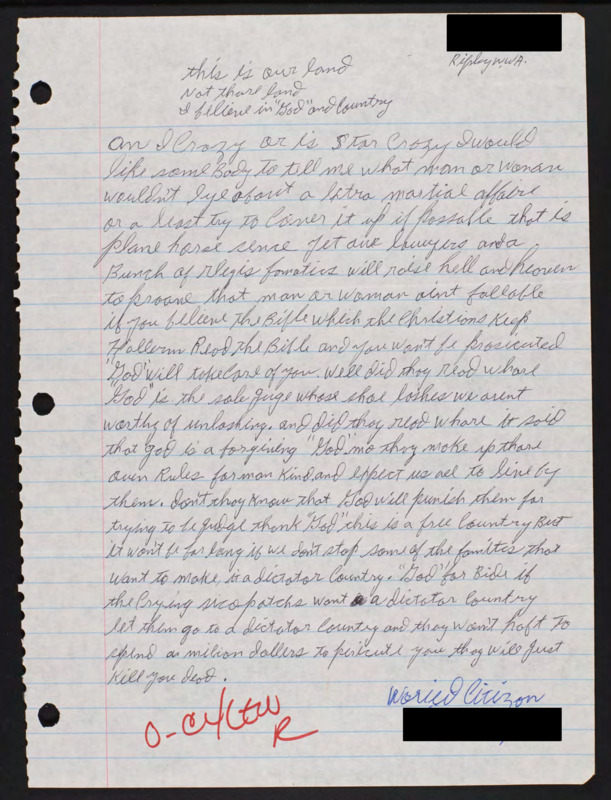 Ripley W.VA.
this is our land
Not thare land
I believe in "God" and Country
am I Crazy or is Star Crazy I would
like some Body to tell me what man or Woman
wouldn't lye about a Extra martial affaire
or a least try to Cover it up if possable that is
plane horse sence yet our lawyers and a
Bunch of religis fanatics will raise hell and heaven
to proove that man or woman aint fallable
if you believe the Bible which the Christions Keep
Hollern Read the Bible and you won't be prosicuted
"God" will take Care of you. Well did they read whare
"God" is the sole Juge whose shoe lashes we arent
worthy of unlashing. and did they read whare it said
that god is a forgiving "God". no they make up thare
own Rules for man Kind and expect us all to live by
them. don't they Know that God will punish them for
trying to be judge thank "God" this is a free Country But
it won't be for long if we don't stop some of the that
want to make it a dictator Country. "God" for Bide if
the Crying sicopatchs want a dictator Country
let them go to a dictator Country and they won't haft To
spend a milion dollers to persicute you they will Just
Kill you dead.
Woried Citizon
R